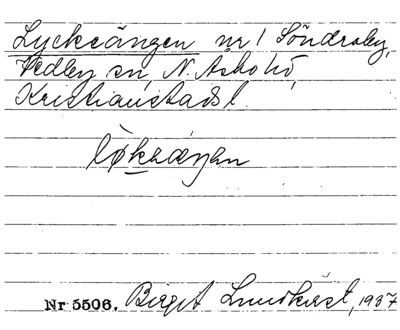 Lycksängen nr 1 Söndraby,
Vedby sn, N. Åsbo hd,
Kristianstads l.
løksæŋen
Nr 5506. Birgit Lundkvist, 1937